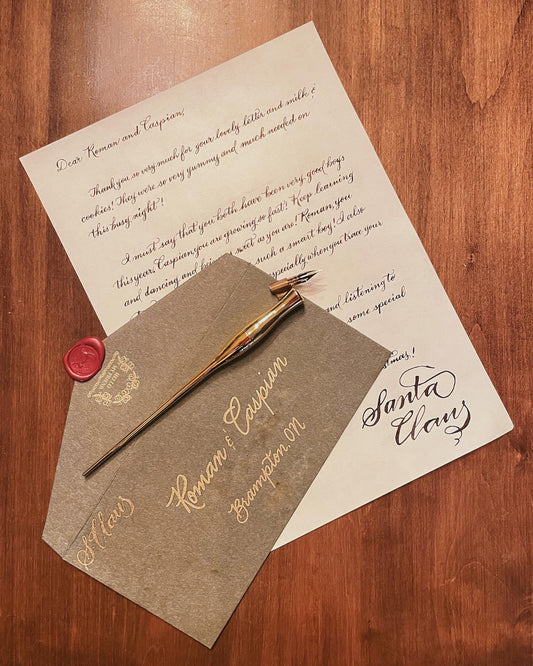 Dear Roman and Caspian,
Thank you so very much for your lovely letter and milk &
cookies! They were so very yummy and much needed on
this busy night!
I must say that you both have been very good boys
this year. Caspian, you are growing so fast! Keep learning
and dancing and being sweet as you are! Roman, you
such a smart boy! I also
especially when you trace your
and listening to
some special
Santa
Claus
Roman & Caspian
Brampton, ON
S. Claus